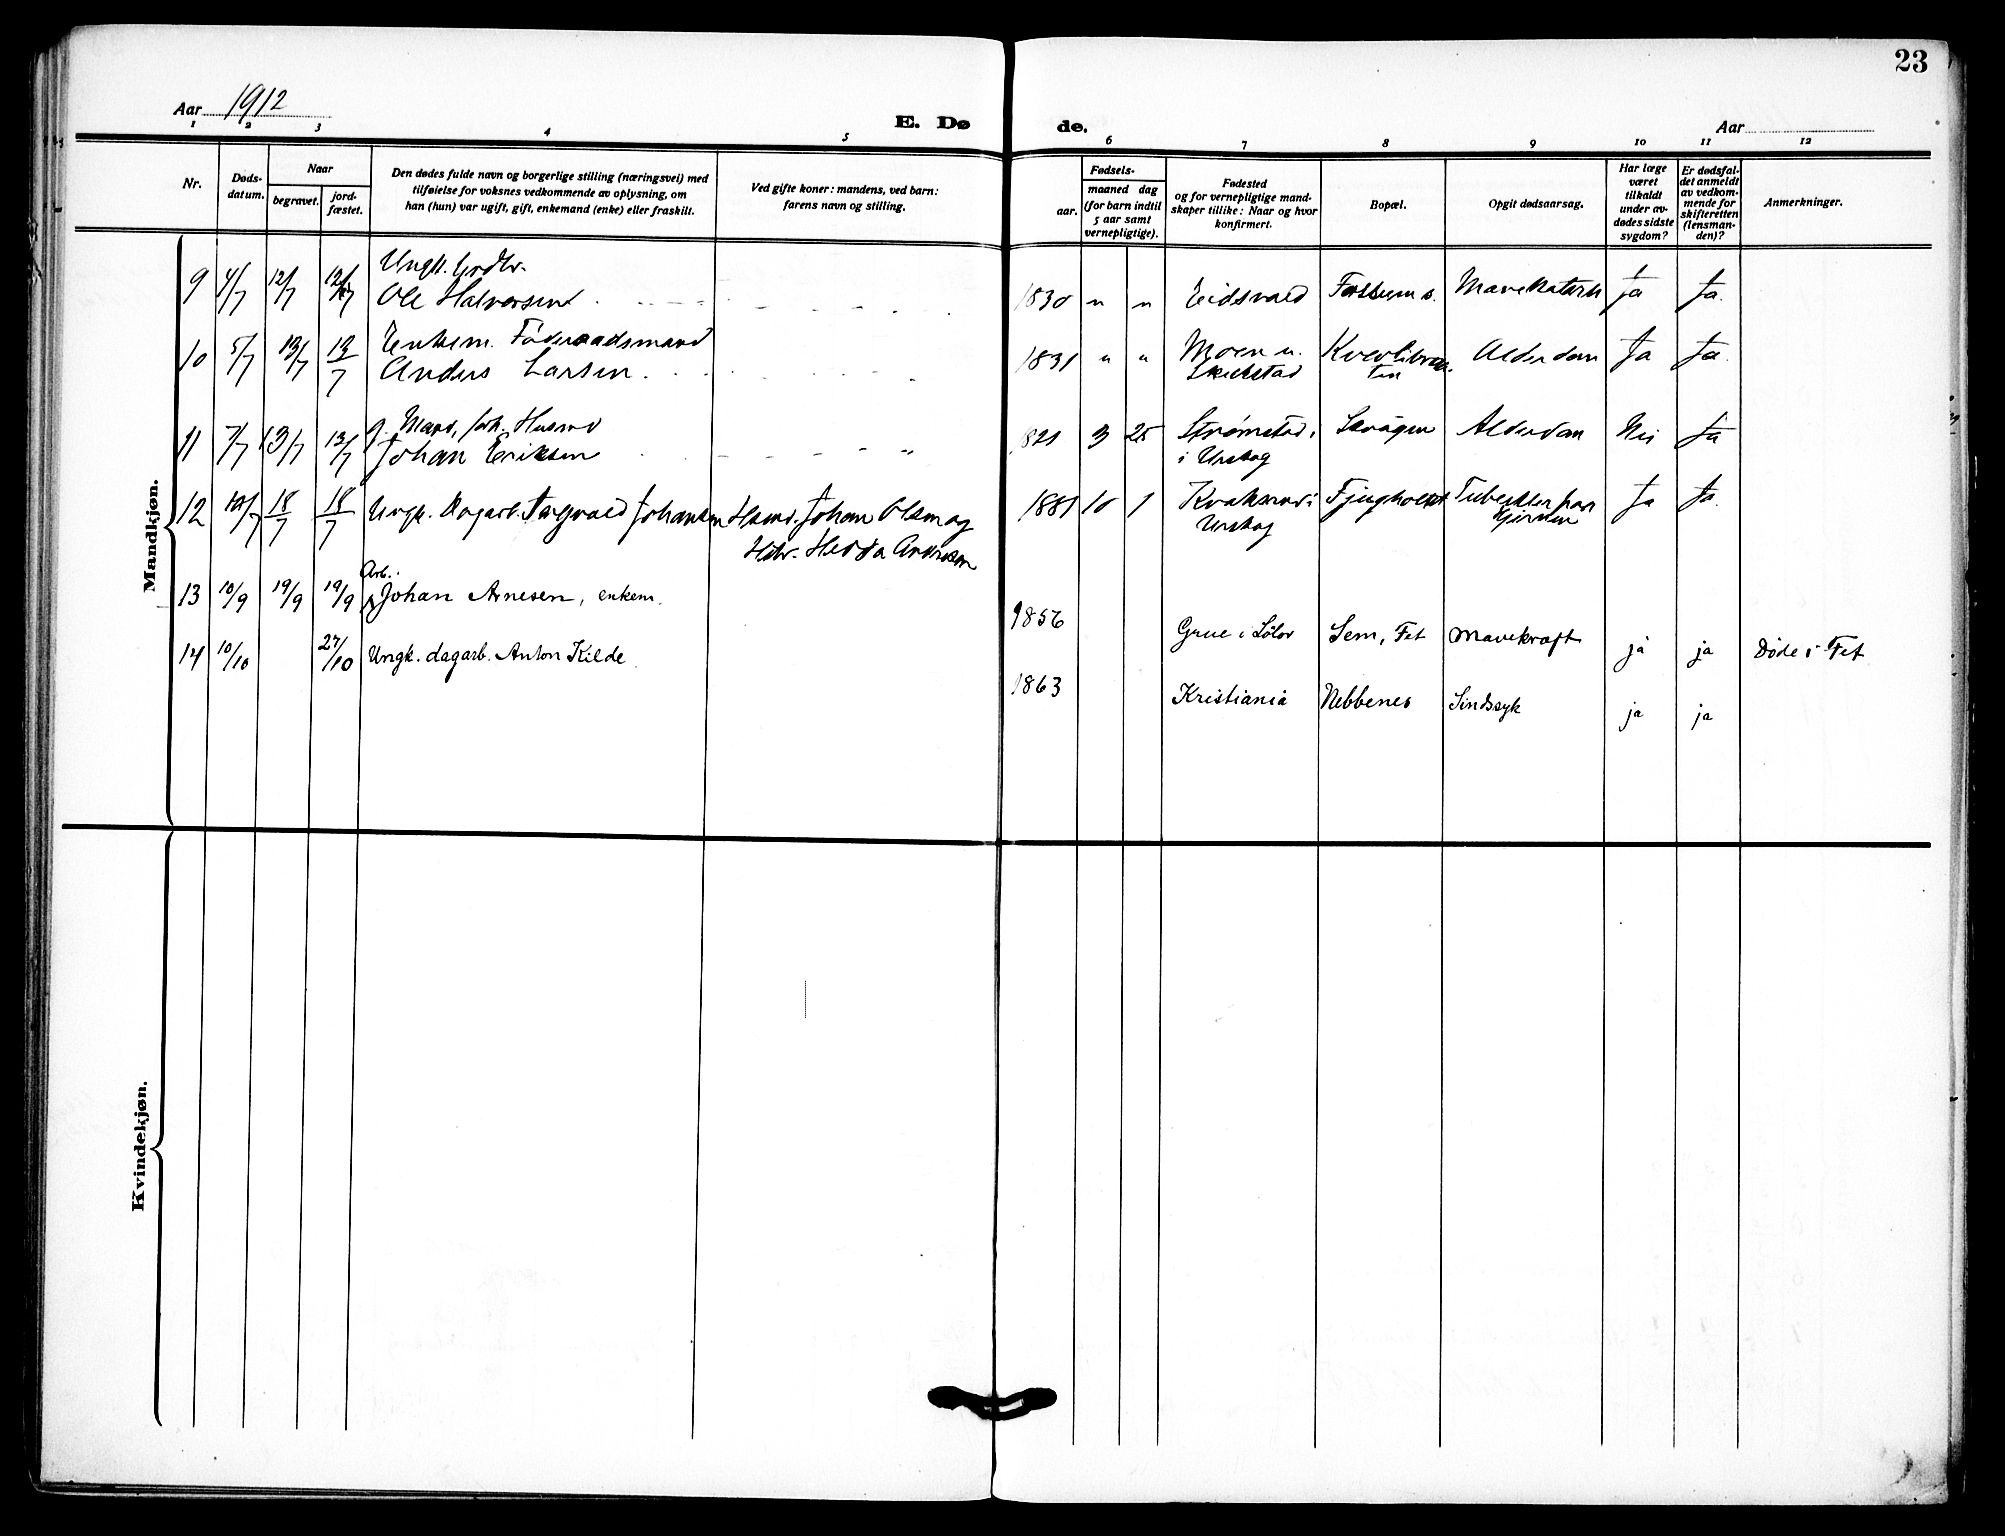 23
Aar 1912
E. Dø de.
Aar
1 2 3 4 5 6 7 8 9 10 11 12
Nr.
Døds-
datum.
Naar
begravet.
jord-
fæstet.
Den dødes fulde navn og borgerlige stilling (næringsvei) med
tilføielse for voksnes vedkommende av oplysning, om
han (hun) var ugift, gift, enkemand (enke) eller fraskilt.
Ved gifte koner: mandens, ved barn:
farens navn og stilling.
Fødsels-
aar.
maaned dag
(for barn indtil
5 aar samt
vernepligtige).
Fødested
og for vernepligtige mand-
skaper tillike: Naar og hvor
konfirmert.
Bopæl.
Opgit dødsaarsag.
Har læge
været
tilkaldt
under av-
dødes sidste
sygdom?
Er dødsfal-
det anmeldt
av vedkom-
mende for
skifteretten
(lensman-
den)?
Anmerkninger.
Mandkjøn.
Ungk.
9 4/7 12/7 12/7 Ole Halvorsen 1830 " " Eidsvold Mavekatarh Ja Ja.
Enkem. Føderaadsmand
10 5/7 13/7 13/7 Anders Larsen 1831 " " Moen u. Alderdom Ja Ja.
g. Mand, Husmd
11 7/7 13/7 13/7 Johan Eriksen 1821 3 25 Strømstad i Alderdom Nei Ja
i Urskog
12 18/7 18/7 Ungk. Dagarb. Torgvald Johansen Husmd. Johan Olsen og 1881 10 1 i Ja Ja.
Hedda Andersen Urskog
Arb.
13 10/9 19/9 19/9 Johan Arnesen, enkem. 1856 Grue i Solør Sem, Fet Mavekræft ja ja Døde i Fet
14 10/10 27/10 Ungk. dagarb. Anton Kilde 1863 Kristiania Nebbenes Sindssyk ja ja
Kvindekjøn.